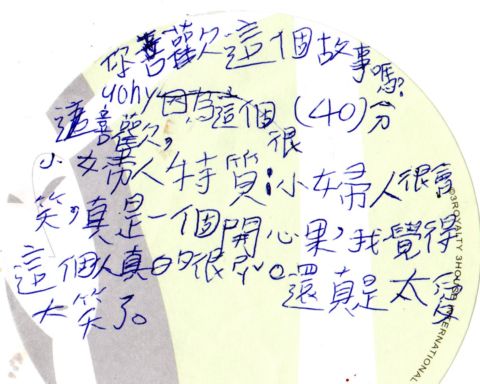 你喜歡這個故事嗎?
yohy 因為這個(40)分
喜歡, 很
小婦人特質:小婦人很會
笑,真是一個開心果,我覺得
這個人真的很。還真是太愛
大笑了。
INTERNATIONAL